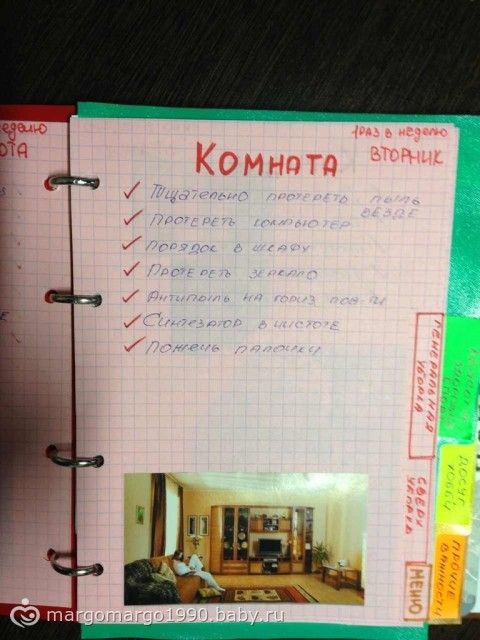 неделю
ОТА
1 РАЗ В НЕДЕЛЮ
КОМНАТА ВТОРНИК
✓ Тщательно протереть пыль везде
✓ Протереть компьютер
✓ Порядок в шкафу
✓ Протереть зеркало
✓ Антипыль на гориз. пов-ти
✓ Синтезатор в чистоте
✓ Пожечь палочки
ГЕНЕРАЛЬНАЯ УБОРКА
СВЕРХ УБОРКА
МЕНЮ
ДОСУГ ХОББИ
ПРОЧИЕ ВАЖНОСТИ
margomargo1990.baby.ru